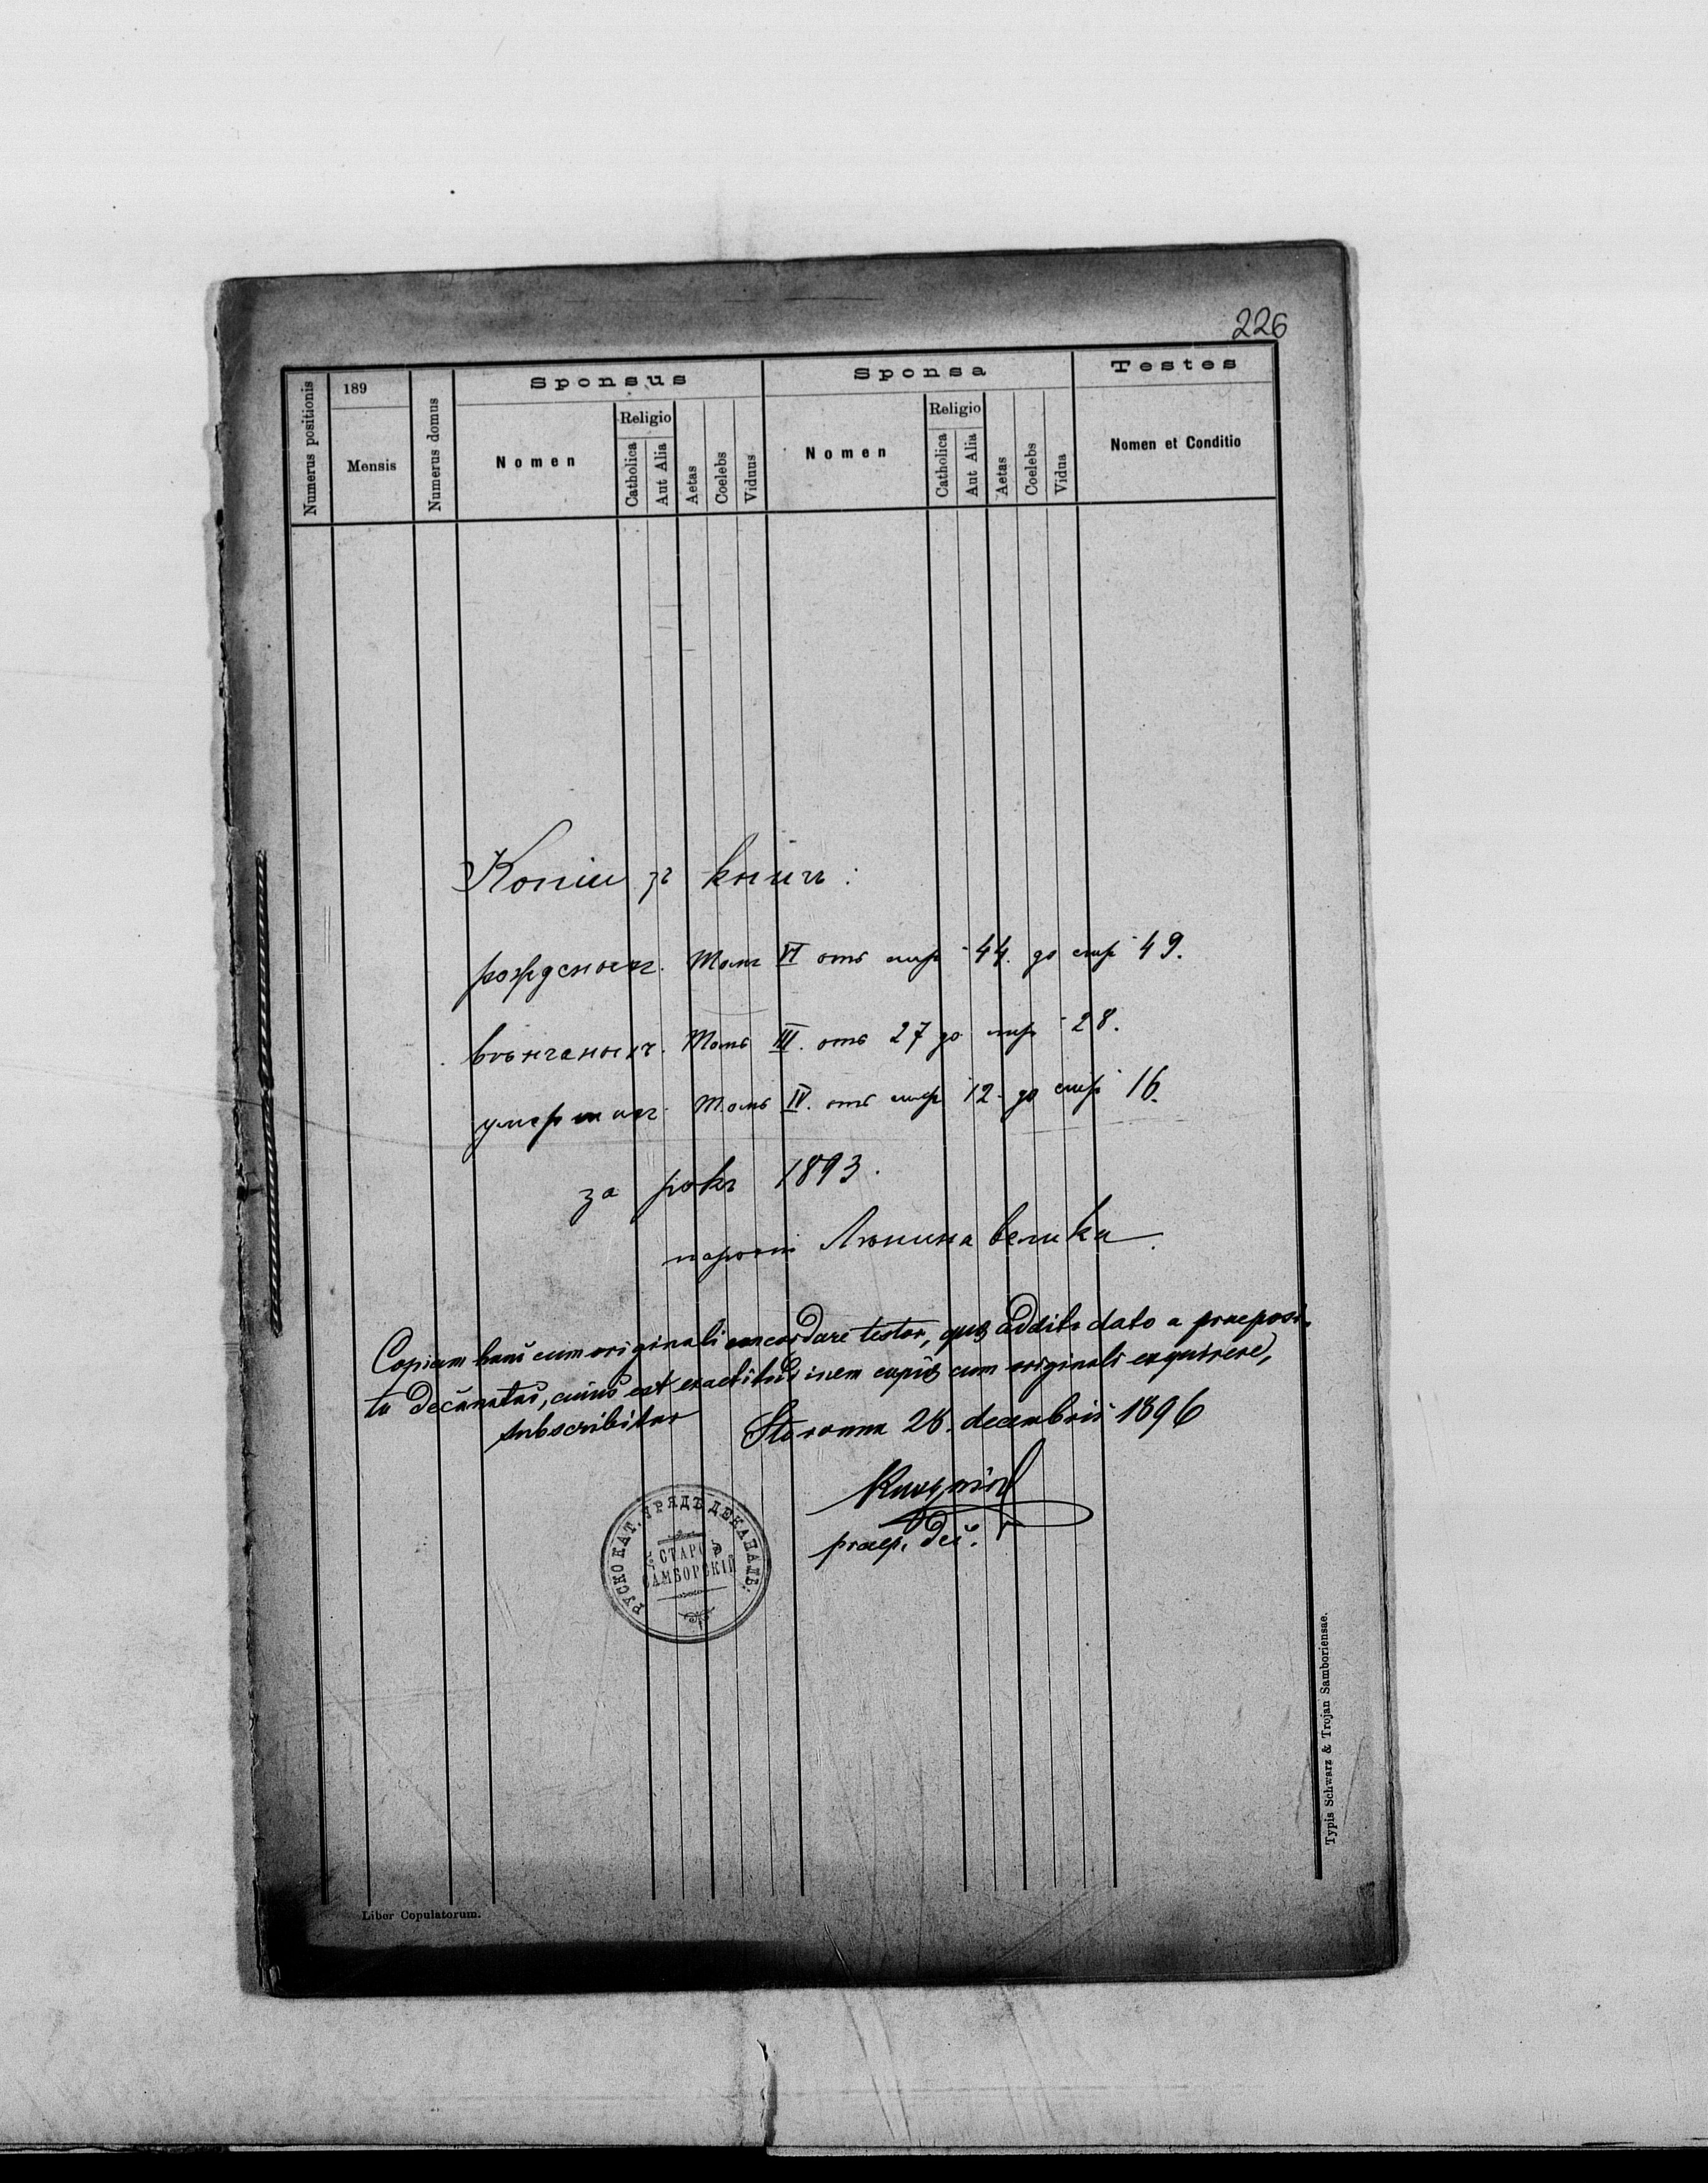 226
Numerus positionis
189
Mensis
Numerus domus
Sponsus
Nomen
Religio
Catholica
Aut Alia
Aetas
Coelebs
Viduus
Sponsa
Nomen
Religio
Catholica
Aut Alia
Aetas
Coelebs
Vidua
Testes
Nomen et Conditio
Копіи зъ книгъ:
рожденыхъ. Томъ VI отъ стр 44. до стр 49.
вѣнчаныхъ. Томъ III. отъ 27 до стр 28.
умершихъ. Томъ IV. отъ стр 12. до стр 16.
за рокъ 1893.
парохіи Лютина велика.
Copiam hanc cum originali concordare testor, quo addito dato a praeposi-
to decanatus, cuius est exactitudinem copiae cum originali exquirere,
subscribitur
28. decembris 1896
praep. dec.
РУСКО КАТ. УРЯДЪ ДЕКАНАЛЬ.
СТАРО
САМБОРСКІЙ
Typis Schwarz & Trojan Samboriensae.
Liber Copulatorum.